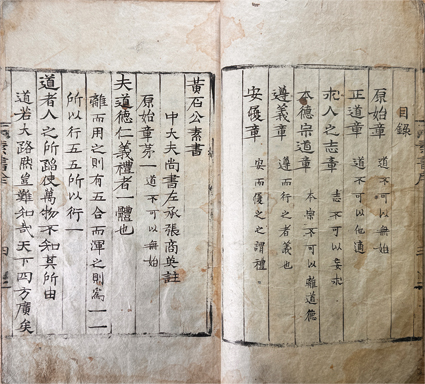 目錄
原始章 道不可以無始
正道章 道不可以他適
求人之志章 志不可以妄求
本德宗道章 本宗不可以離道德
遵義章 遵而行之者義也
安禮章 安而履之之謂禮
黃石公素書
中大夫尚書左承張商英註
原始章第一 道不可以無始
夫道德仁義禮者一體也
離而用之則有五合而渾之則為一一
所以行五五所以行一
道者人之所蹈使萬物不知其所由
道若大路然豈難知哉天下四方廣矣